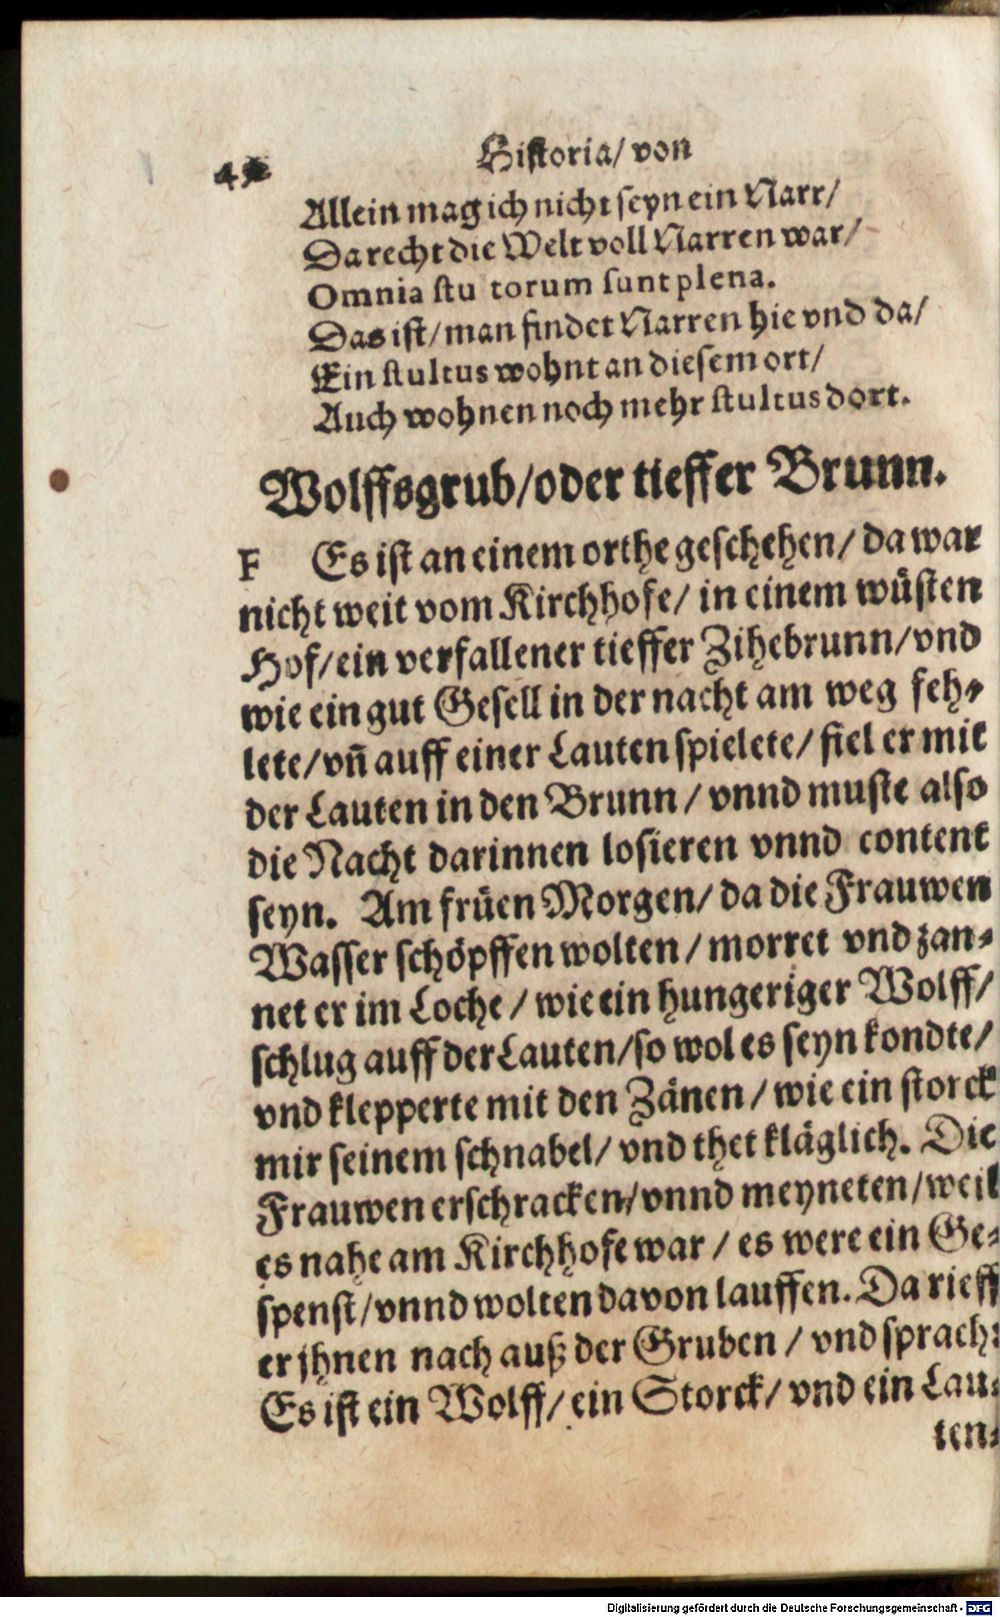 Historia/ von
Allein mag ich nicht seyn ein Narr/
Da recht die Welt voll Narren war/
Omnia stu torum sunt plena.
Das ist/ man findet Narren hie vnd da/
Ein stultus wohnt an diesem ort/
Auch wohnen noch mehr stultus dort.
Wolffsgrub/oder tieffer Brunn.
F Es ist an einem orthe geschehen/ da war
nicht weit vom Kirchhofe/ in einem wüsten
Hof/ein verfallener tieffer Zihebrunn/vnd
wie ein gut Gesell in der nacht am weg feh⸗
lete/vñ auff einer Lauten spielete/ fiel er mit
der Lauten in den Brunn / vnnd muste also
die Nacht darinnen losieren vnnd content
seyn. Am früen Morgen/ da die Frauwen
Wasser schöpffen wolten / morret vnd zan⸗
net er im Loche / wie ein hungeriger Wolff/
schlug auff der Lauten/so wol es seyn kondte/
vnd klepperte mit den Zänen / wie ein storck
mir seinem schnabel/ vnd thet kläglich. Die
Frauwen erschracken/vnnd meyneten/weil
es nahe am Kirchhofe war / es were ein Ge⸗
spenst/vnnd wolten davon lauffen. Da rieff
er jhnen nach auß der Gruben / vnd sprach:
Es ist ein Wolff/ ein Storck/ vnd ein Lau⸗
ten⸗
Digitalisierung gefördert durch die Deutsche Forschungsgemeinschaft - DFG